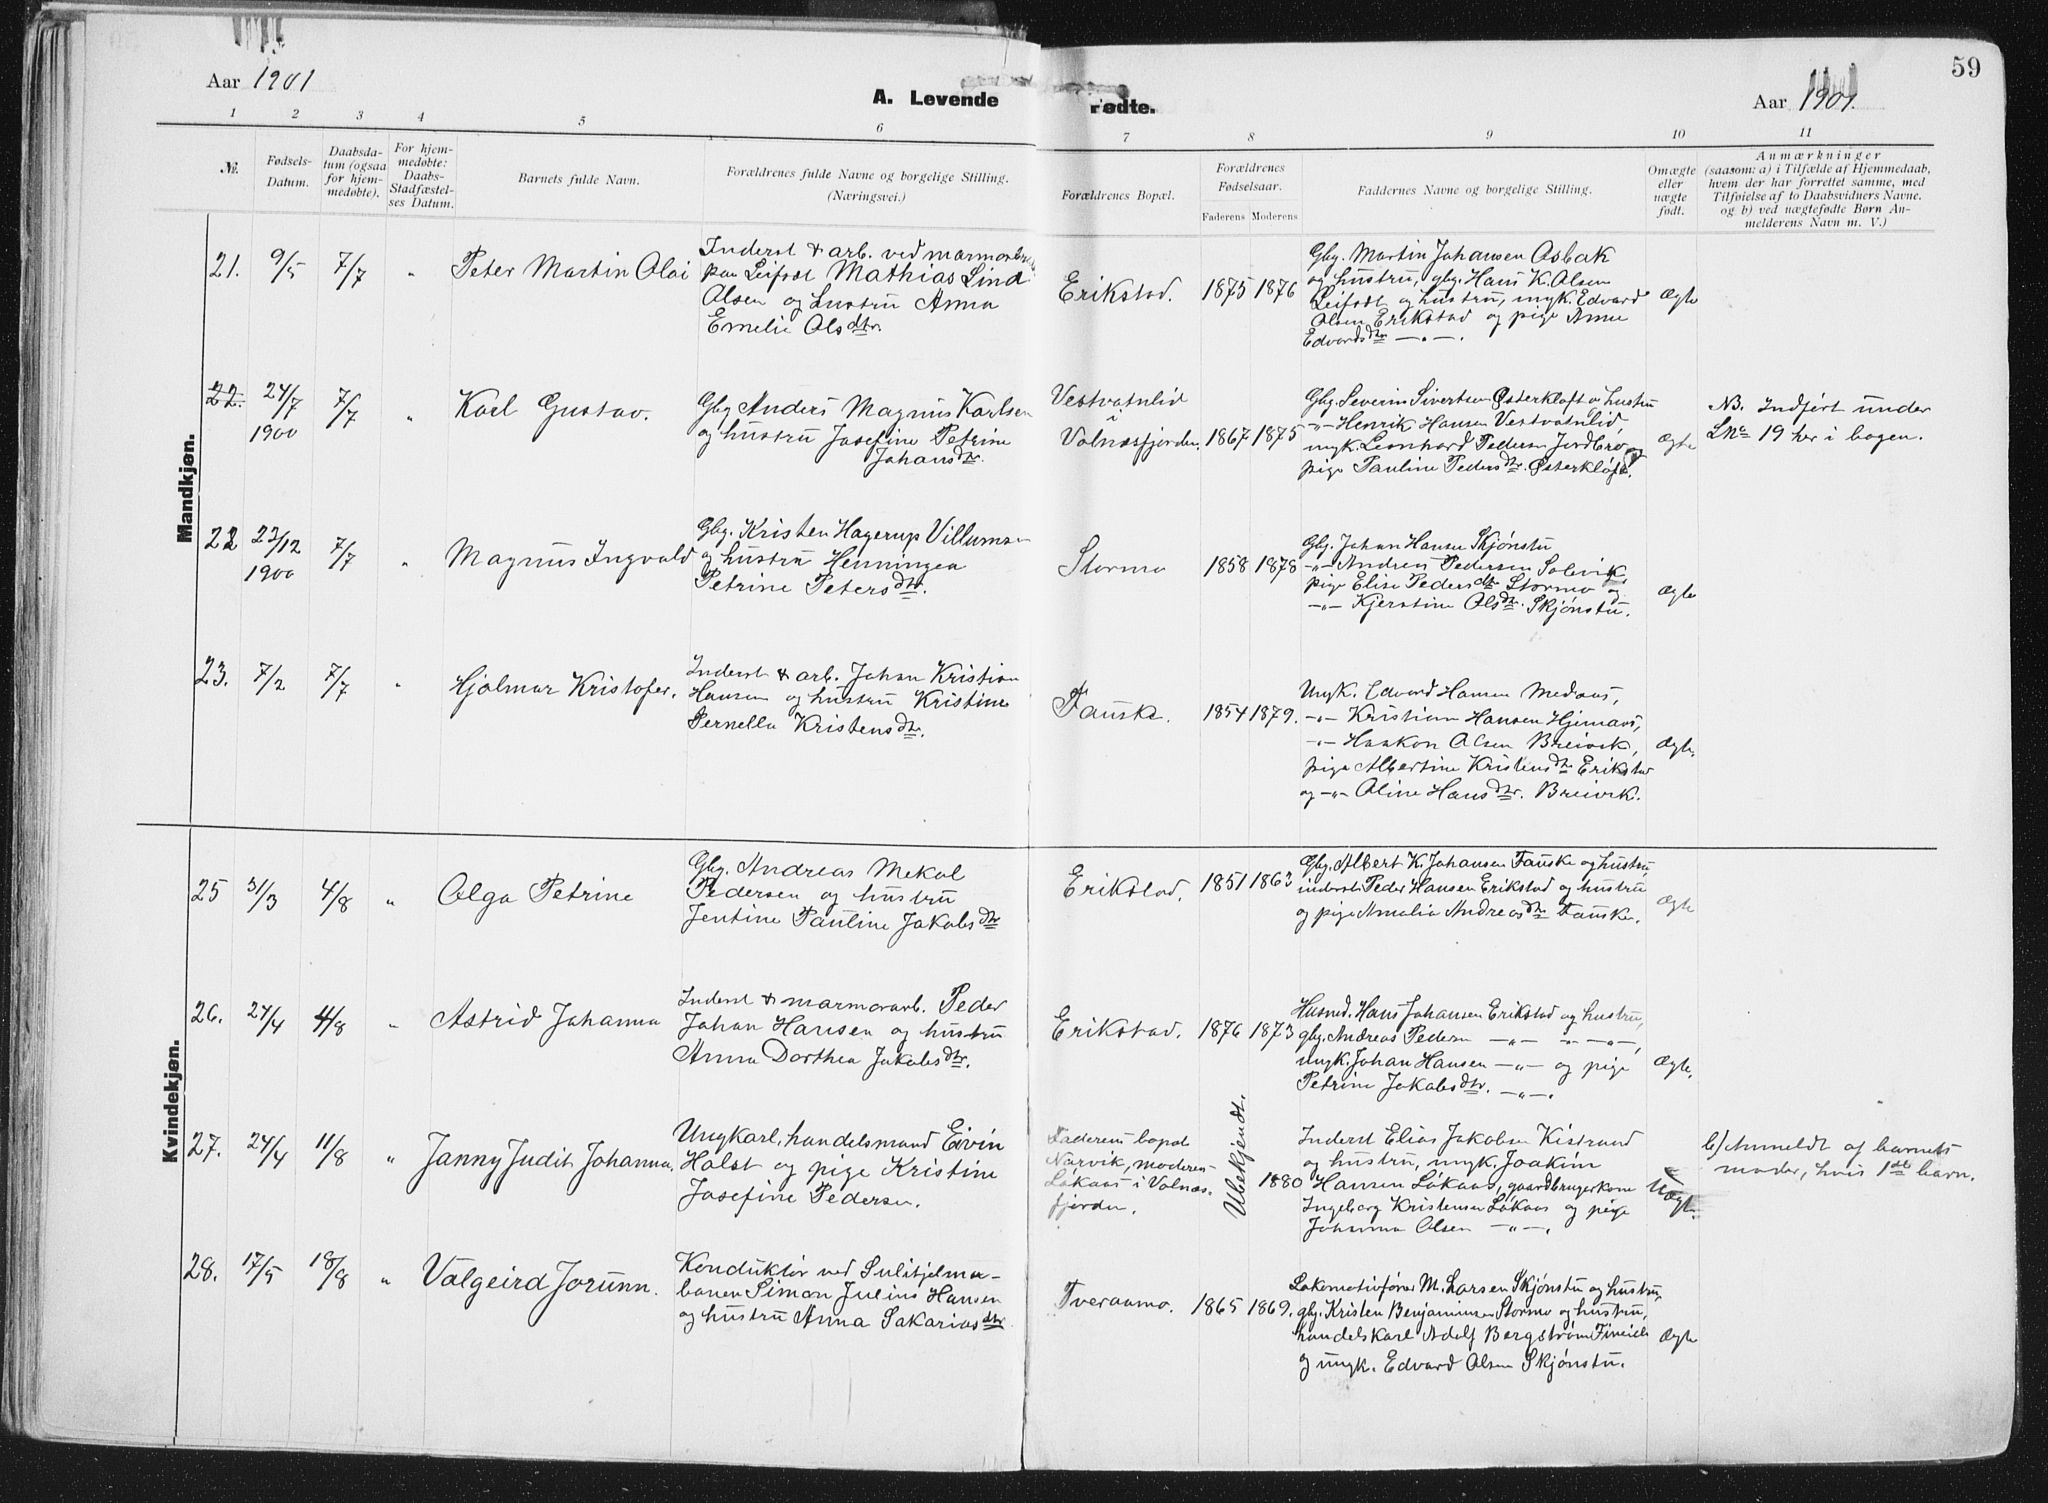 59
Aar 1901
A. Levende Fødte.
Aar 1901.
1 2 3 4 5 6 7 8 9 10 11
№.
Fødsels-
Datum.
Daabsda-
tum (ogsaa
for hjem-
medøbte).
For hjem-
medøbte:
Daabs-
Stadfæstel-
ses Datum.
Barnets fulde Navn.
Forældrenes fulde Navne og borgelige Stilling.
(Næringsvei.)
Forældrenes Bopæl.
Forældrenes
Fødselsaar.
Faderens Moderens
Faddernes Navne og borgelige Stilling.
Omægte
eller
uægte
født.
Anmærkninger
(saasom: a) i Tilfælde af Hjemmedaab,
hvem der har forrettet samme, med
Tilføielse af to Daabsvidners Navne.
og b) ved uægtefødte Børn An-
melderens Navn m. V.)
Mandkjøn.
21. 9/5 7/7 " Peter Martin Olai
Inderst & arb. ved marmorbru
paa Leifsdt Mathias Lind
Olsen og hustru Anna
Emelie Olsdtr.
Erikstad. 1875 1876
Gbg. Martin Johansen Osbak
og hustru, gbg. Hans K. Olsen
Leifsdt og hustru, ungk. Edvard
Olsen Erikstad og pige Anne
Edvardsdtr —„—.
Ægte
22. 24/7 1900 7/7 " Karl Gustav.
Gbg Anders Magnus Karlsen
og hustru Josefine Petrine
Johansdtr.
Vestvatnlid
i
Valnæsfjorden. 1867 1875
Gbg. Severin Sivertsen Østerkløft o hustru
-„- Henrik Hansen Vestvatnlid,
ungk. Leonhard Pedersen Jordbro og
pige Pauline Pedersdtr. Østerkløft.
Ægte
NB. Indført under
L No 19 her i bogen.
22 23/12 1900 7/7 " Magnus Ingvald
Gbg. Kristen Hagerup Villumsen
og hustru Henningea
Petrine Petersdtr.
Stormo 1858 1878
Gbg. Johan Hansen Skjønstu
-„- Andreas Pedersen Solvik,
pige Elise Pedersdtr Stormo og
-„- Kjerstine Olsdtr. Skjønstu.
Ægte
23. 7/2 7/7 " Hjalmar Kristofer.
Inderst & arb. Johan Kristian
Hansen og hustru Kristine
Pernella Kristensdtr.
Fauske. 1854 1879.
Ungk. Edvard Hansen Medaas,
-„- Kristian Hansen Hjemaas,
-„- Haakon Olsen Breivik,
pige Albertine Kristensdtr Erikstad
og -„- Oline Hansdtr. Breivik.
Ægte.
Kvindekjøn.
25 31/3 4/8 " Olga Petrine
Gbg. Andreas Mekal
Pedersen og hustru
Jentine Pauline Jakobsdtr
Erikstad. 1851 1863
Gbg. Albert K. Johansen Fauske og hustru,
inderst Peder Hansen Erikstad og hustru
og pige Amalia Andreasdtr Fauske.
Ægte
26. 24/4 4/8 " Astrid Johanna
Inderst & marmorarb. Peder
Johan Hansen og hustru
Anna Dorthea Jakobsdtr.
Erikstad. 1876 1873
Husmd. Hans Johansen Erikstad og hustru,
gbg. Andreas Pedersen —„— „—„—,
ungk. Johan Hansen —„— og pige
Petrine Jakobsdtr. —„—.
Ægte.
27. 24/4 11/8 " Janny Judit Johanna,
Ungkarl, handelsmand Eivin
Holst og pige Kristine
Josefine Pedersen.
Faderens bopæl
Narvik, moderen
Løkaas i Valnæs-
fjorden.
Ubekjendt. 1880
Inderst Elias Jakobsen Kistrand
og hustru, ungk. Joakim
Hansen Løkaas, gaardbrugerkone
Ingeborg Kristensen Løkaas og pige
Johanna Olsen —„—.
Uægte.
b) Anmeldt af barnets
moder, hvis 1ste barn.
28. 17/5 18/8 " Valgeird Jorunn.
Konduktør ved Sulitjelma-
banen Simon Julius Hansen
og hustru Anna Sakariasdtr
Tveraamo. 1865 1869.
Lokomotivfører M. Larsen Skjønstu og hustru,
gbg. Kristen Benjaminsen Stormo og hustru,
handelskarl Adolf Bergstrøm Fineide
og ungk. Edvard Olsen Skjønstu.
Ægte